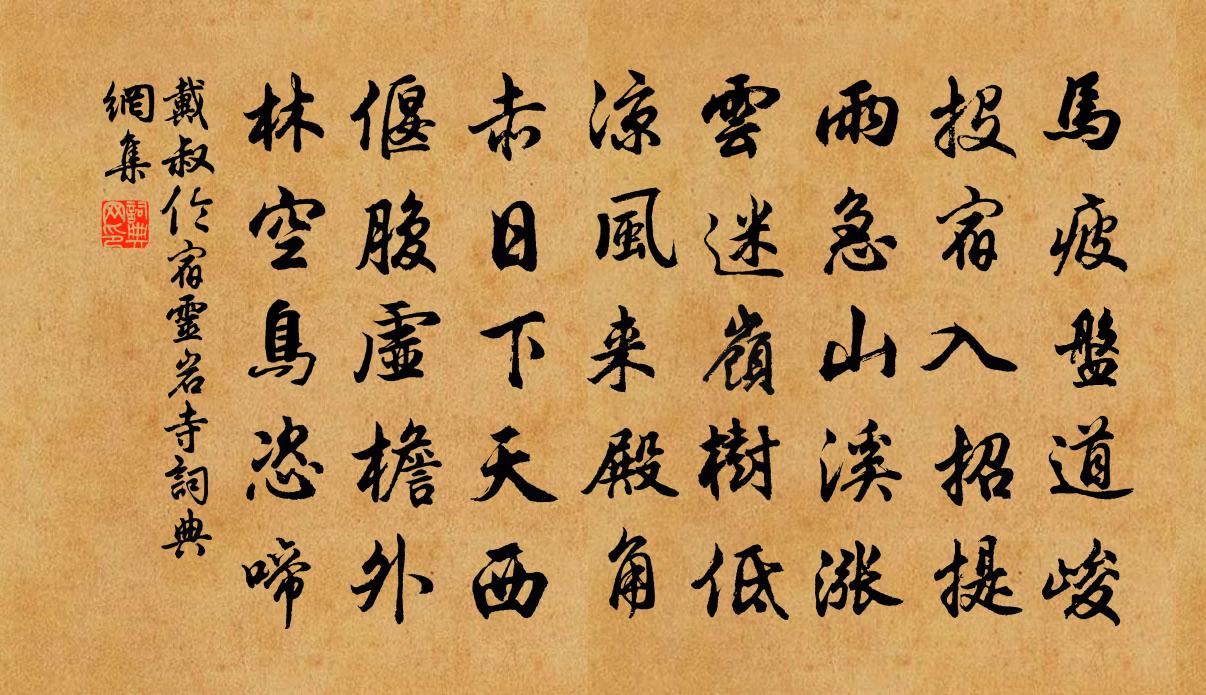 馬疲盤道峻
投宿入招提
雨急山溪漲
雲迷嶺樹低
凉風来殿角
赤日下天西
偃腹虛檐外
林空鳥恣啼
戴叔伦宿靈岩寺詞典
網集
詞典
网印